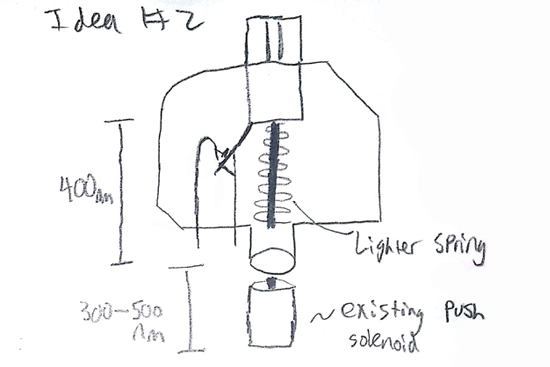 Idea #2
400nm
Lighter spring
300-500
nm
~existing push
solenoid